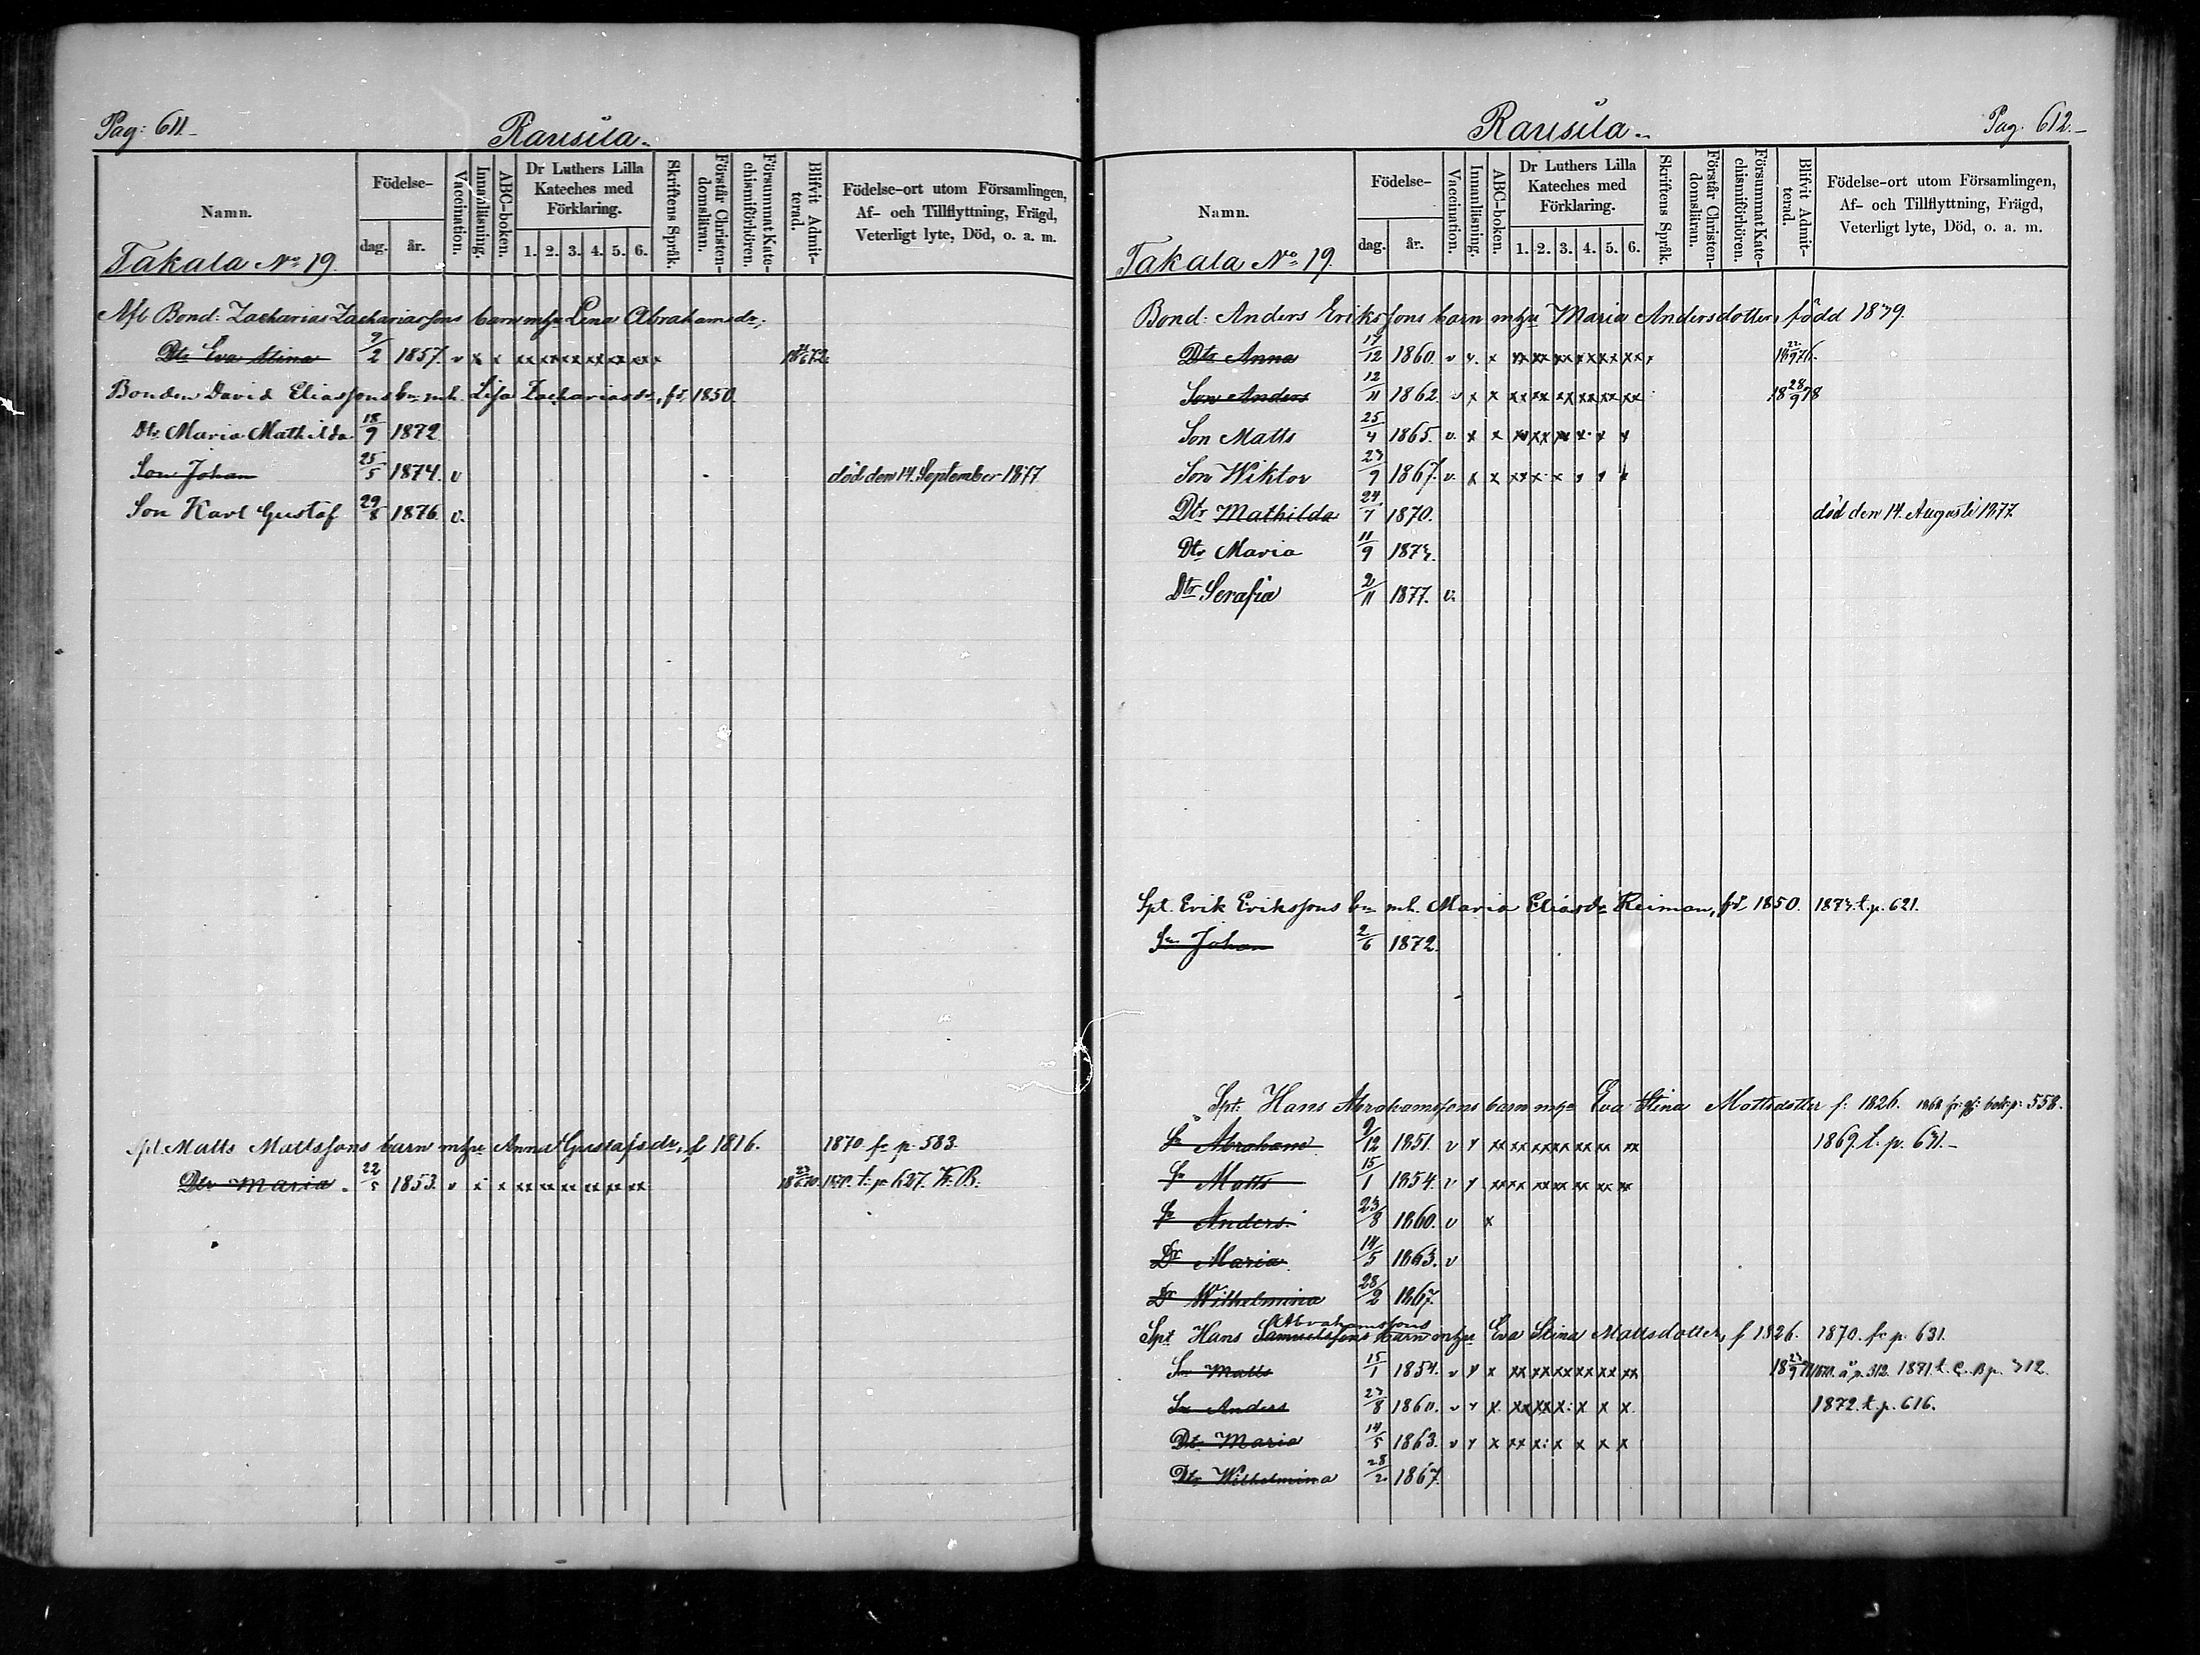 Pag: 611.
Rausila.
Namn.
Födelse-
dag.
år.
Vaccination.
Innanläsning.
ABC-boken.
Dr Luthers Lilla Kateches med Förklaring.
1. 2. 3. 4. 5. 6.
Skriftens Språk.
Förstår Christen-domsläran.
Försummat Kate-chismiförhören.
Blifvit Admit-terad.
Födelse-ort utom Församlingen,
Af- och Tillflyttning, Frägd,
Veterligt lyte, Död, o. a. m.
Takala No 19.
Afl. Bond: Zacharias Zachariassons barn m hu Lena Abrahamsdr;
Dtr Eva Stina 9/2 1857. v x x xx xx xx xx xx xx x
Bonden David Eliassons bn m.h. Lisa Zachariasdr, fd 1850.
Dtr Maria Mathilda 18/9 1872
Son Johan 25/5 1874. v död den 14. September 1877
Son Karl Gustaf 29/8 1876. v.
Spt. Matts Mattssons barn m hu Anna Gustafsdr, f 1816. 1870 fr. p. 583.
Dtr Maria. 22/5 1853. v x x xx xx xx xx xx xx t. p. 627. K. B.
Rausila.
Pag. 612.
Namn.
Födelse-
dag.
år.
Vaccination.
Innanläsning.
ABC-boken.
Dr Luthers Lilla Kateches med Förklaring.
1. 2. 3. 4. 5. 6.
Skriftens Språk.
Förstår Christen-domsläran.
Försummat Kate-chismiförhören.
Blifvit Admit-terad.
Födelse-ort utom Församlingen,
Af- och Tillflyttning, Frägd,
Veterligt lyte, Död, o. a. m.
Takala No 19.
Bond: Anders Erikssons barn m hu Maria Andersdotter, född 1839.
Dtr Anna 17/12 1860. v v. x xx xx xx xx xx xx x 18 22/9 76.
Son Anders 12/11 1862. v x x xx xx xx xx xx xx 18 28/9 78
Son Matts 25/4 1865. v. x x xx xx xx x x x
Son Wiktor 23/9 1867. v. x x xx x x
Dtr Mathilda 24/7 1870. död den 14. Augusti 1877.
Dtr Maria 11/9 1873.
Dtr Serafia 2/11 1877. v.
Spt. Erik Erikssons bn m.h. Maria Eliasdr Reiman, fd 1850. 1873. t. p. 621.
Sn Johan 2/6 1872.
Spt. Hans Abrahamssons barn m hu Eva Stina Mattsdotter f. 1826. p. 558.
Sn Abraham 9/12 1851. v x xx xx xx xx xx xx 1869. t. p. 631.
Sn Matts 15/1 1854. v x xx xx xx xx xx xx
Sn Anders 23/8 1860. v x
Dr Maria 14/5 1863. v
Dr Wilhelmina 28/2 1867.
Abrahamssons
Spt Hans Samuelssons barn m hu Eva Stina Mattsdotter, f 1826. 1870. fr p. 631.
Sn Matts 15/1 1854. v x x xx xx xx xx xx xx p. 312.
Sn Anders 23/8 1860. v x x. xx xx x. x x x. 1872. t. p. 616.
Dtr Maria 14/5 1863. v x x xx x. x x x x
Dtr Wilhelmina 28/2 1867.